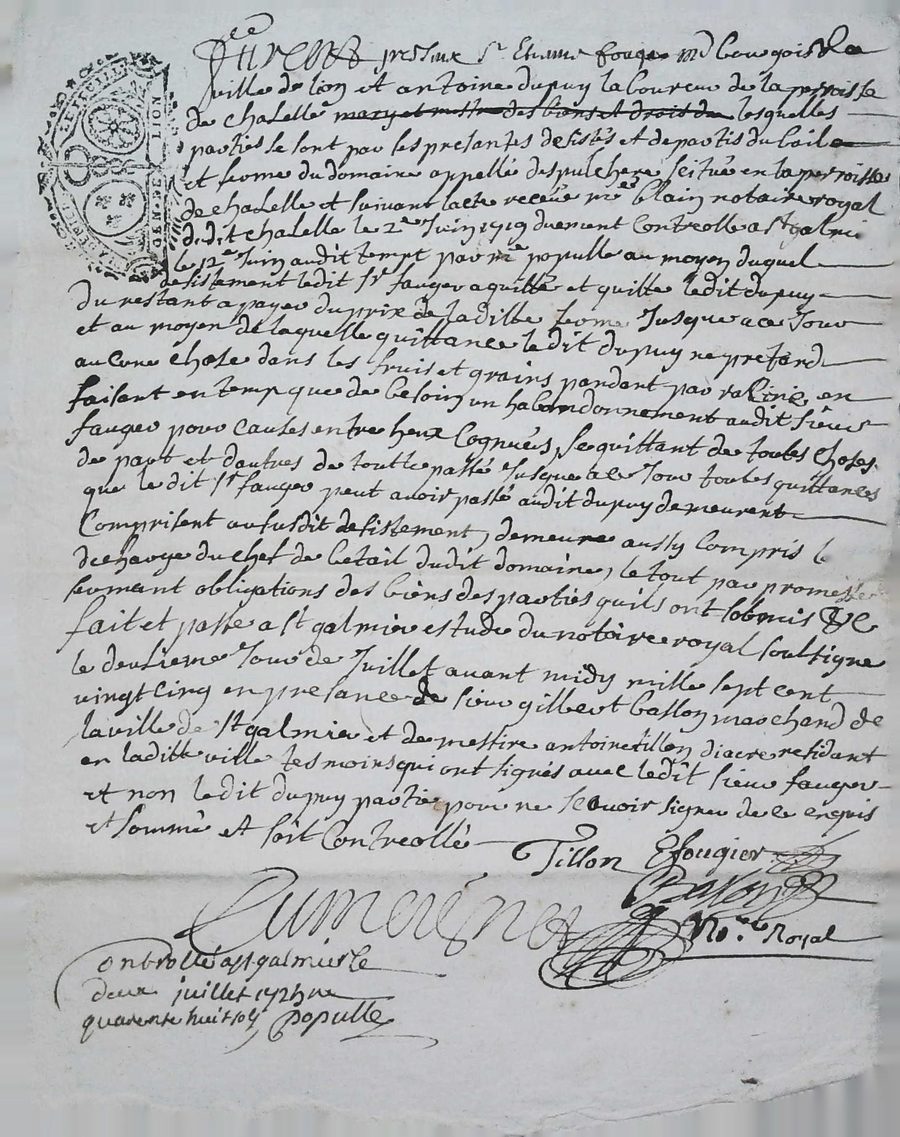 furent presens Sr Etienne fouger md bourgois de la
ville de lion et antoine dupuy laboureur de la perroisse
de chalelle mary et metre des biens et drois de lesquelles
parties se sont par les presantes desistés et departis du bail a
et ferme du domaine appellé despulchere scitué en la perroisse
de chalelle et suivant lacte receu me blain notaire royal
dudit chalelle le 2e Juin 1719 duement Controllé a st galmi
le 12e Juin audit temp par me populle au moyen duquel
desistement ledit sr fauger a quitté et quitte ledit dupuy
du restant a payer du prix de la ditte ferme Jusque a ce Jour
et au moyen de laquelle quittance ledit dupuy ne pretend
aucune chose dans les fruis et grains pandant par racine, en
faisant en temp que de besoin un habandonnement audit sieur
fauger pour causes entre heux Cognues, se quittant de toutes choses
de part et dautres de tout le passé Jusque a ce Jour toutes quittances
que le dit sr fauger peut avoir passé audit dupuy demeurent
Comprisent au susdit desistement, demeure aussy compris l
decharge du chef de betail dudit domaine, le tout par promesse
serment obligations des biens des parties quils ont sobmis &c
fait et passé a st galmier estude du notaire royal soubsigné
le deuxieme Jour de Juillet avant midy mille sept cent
vingt cinq en presance de sieur gilbert basson marchand de
la ville de st galmier et de messire antoine tillon diacre residant
en laditte ville tesmoins qui ont signés avec ledit sieur fauger
et non ledit dupuy partie pour ne scavoir signer de ce enquis
et sommé et soit Controllé
Tillon Efougier
Basson
Cumerignet No.re Royal
Controllé a st galmier le
deux juillet 1725 Receu
quarente huit sols Populle